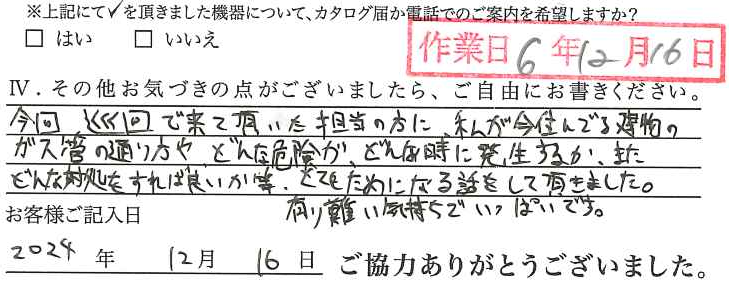 ※上記にて✓を頂きました機器について、カタログ届か電話でのご案内を希望しますか?
□ はい □ いいえ
作業日6年12月16日
Ⅳ.その他お気づきの点がございましたら、ご自由にお書きください。
今回 巡回で来て頂いた担当の方に、私が今住んでる建物の
ガス管の通り方や、どんな危険が、どんな時に発生するか、また
どんな対処をすれば良いか等、とてもためになる話をして頂きました。
有り難い気持ちでいっぱいです。
お客様ご記入日
2024年 12月 16日 ご協力ありがとうございました。